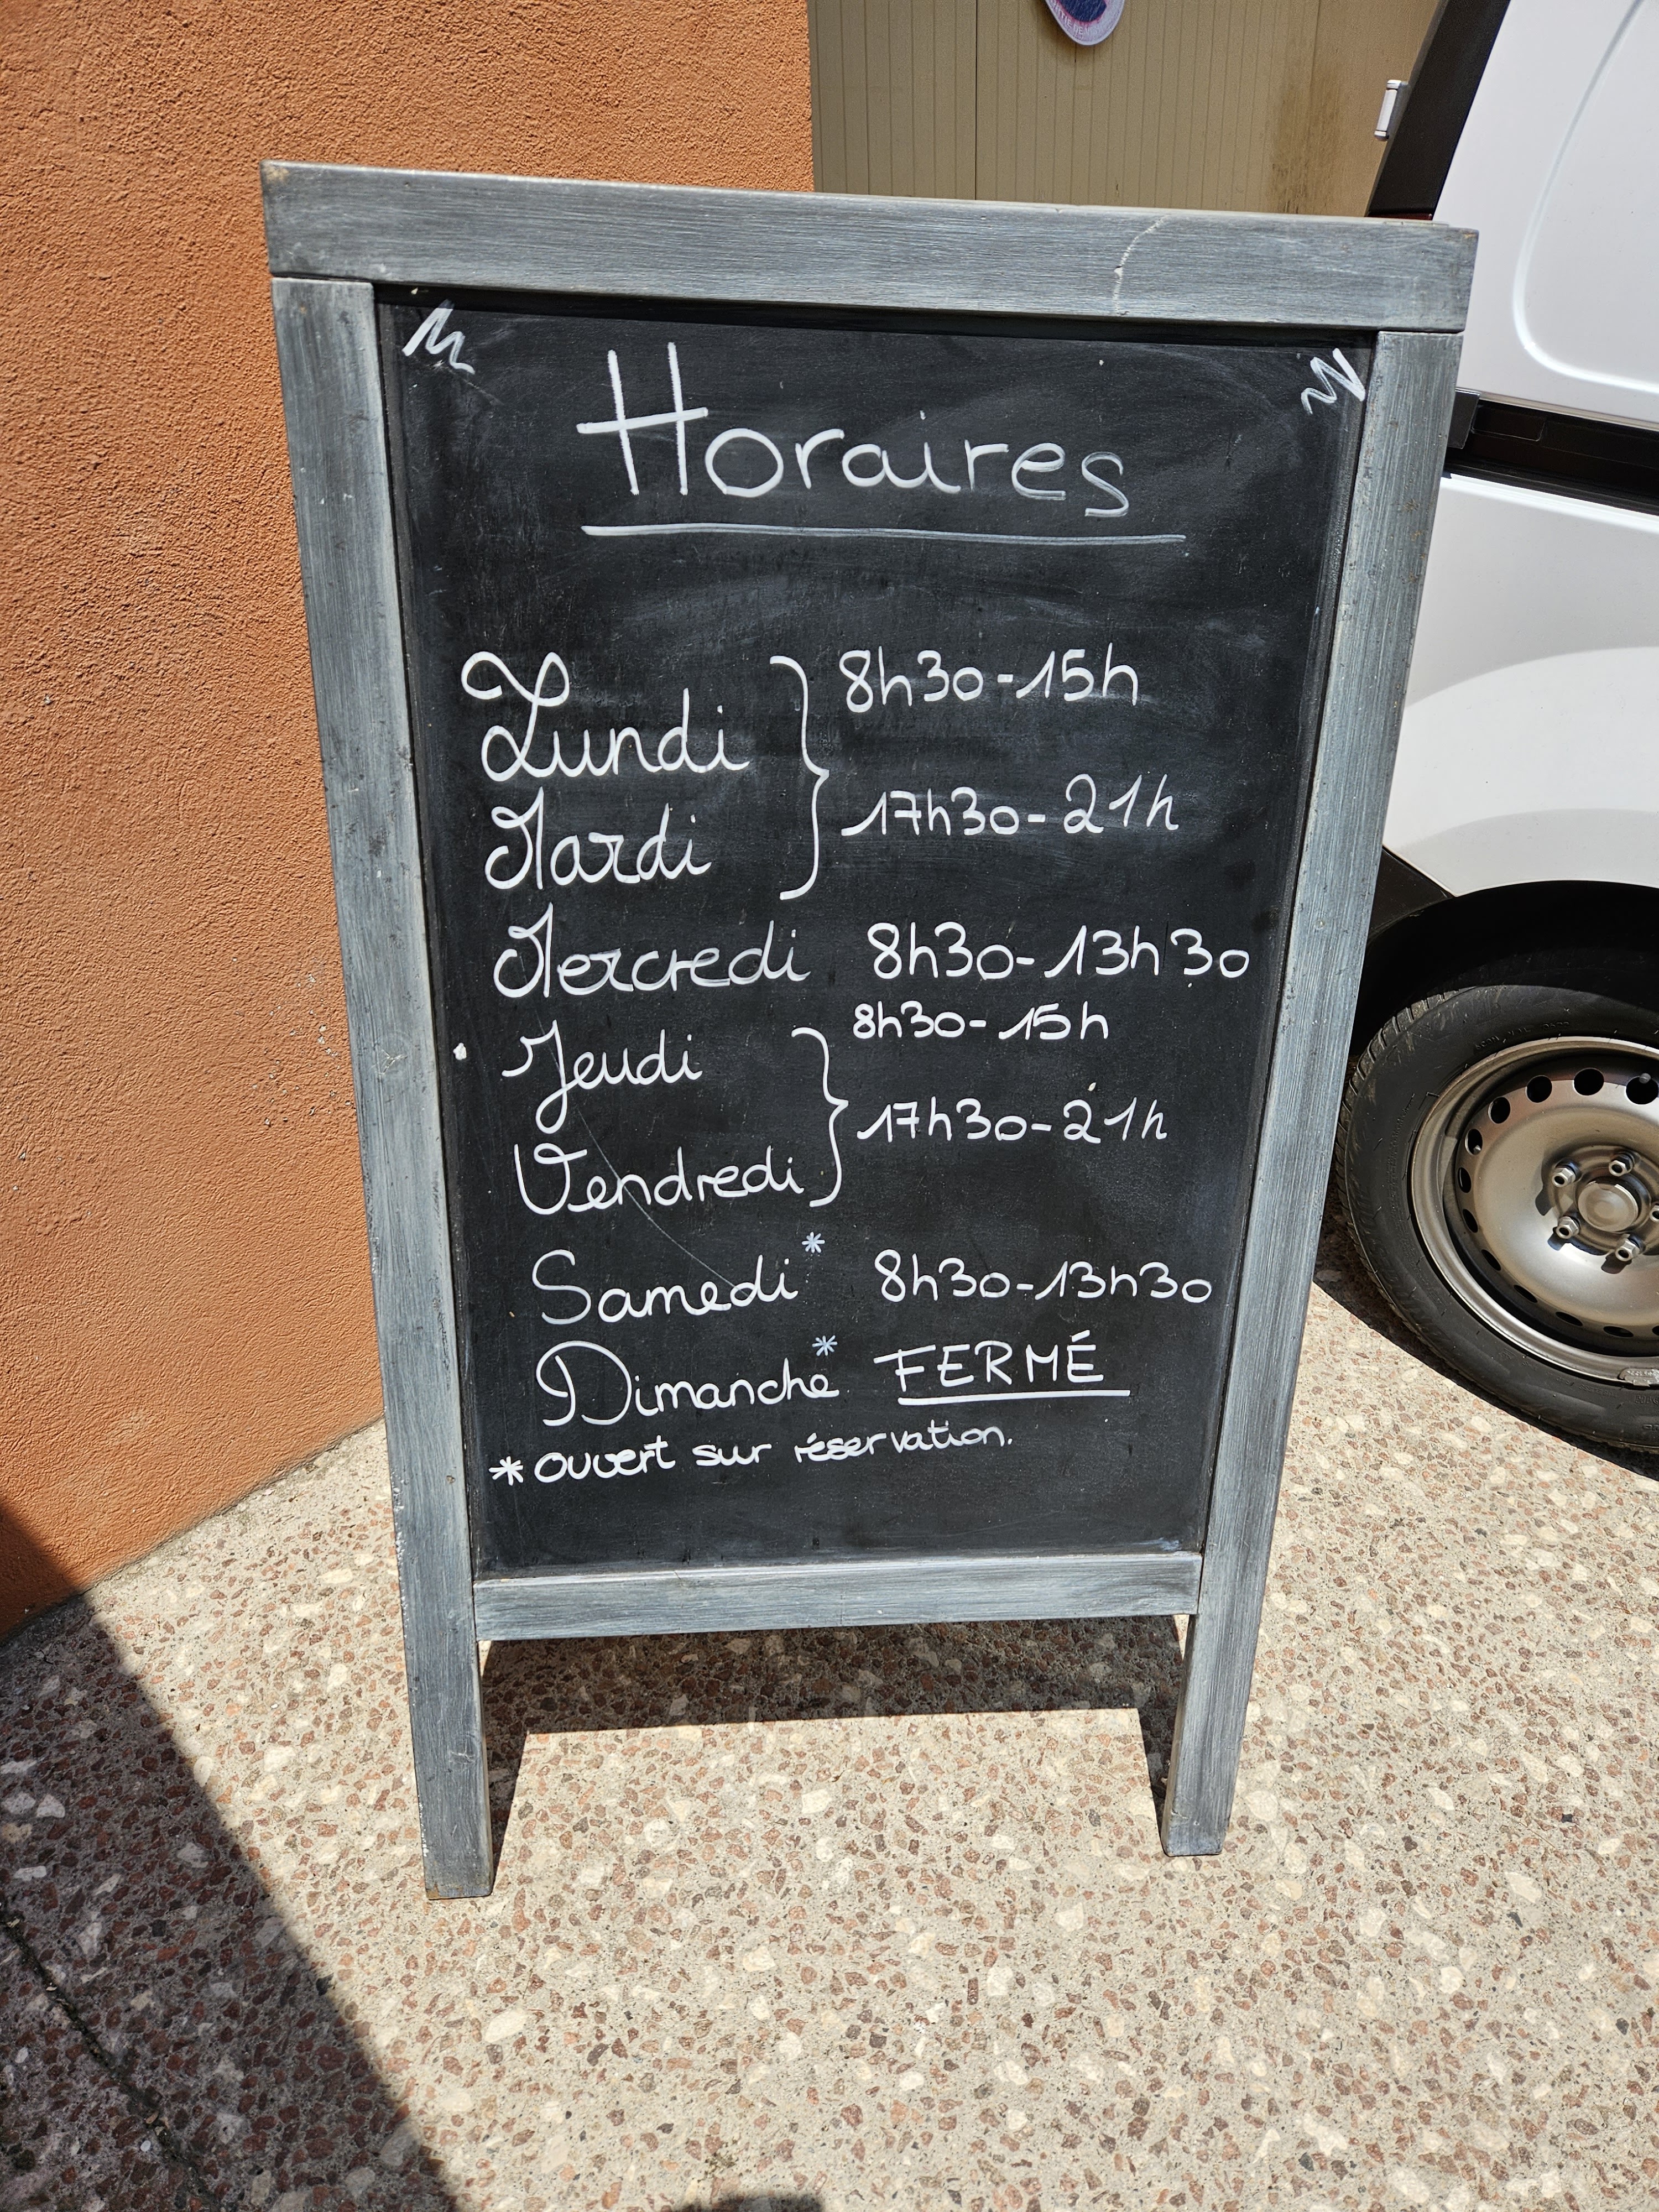 Horaires
Lundi } 8h30-15h
Mardi } 17h30-21h
Mercredi 8h30-13h30
Jeudi } 8h30-15h
Vendredi } 17h30-21h
Samedi* 8h30-13h30
Dimanche* FERMÉ
* ouvert sur réservation.